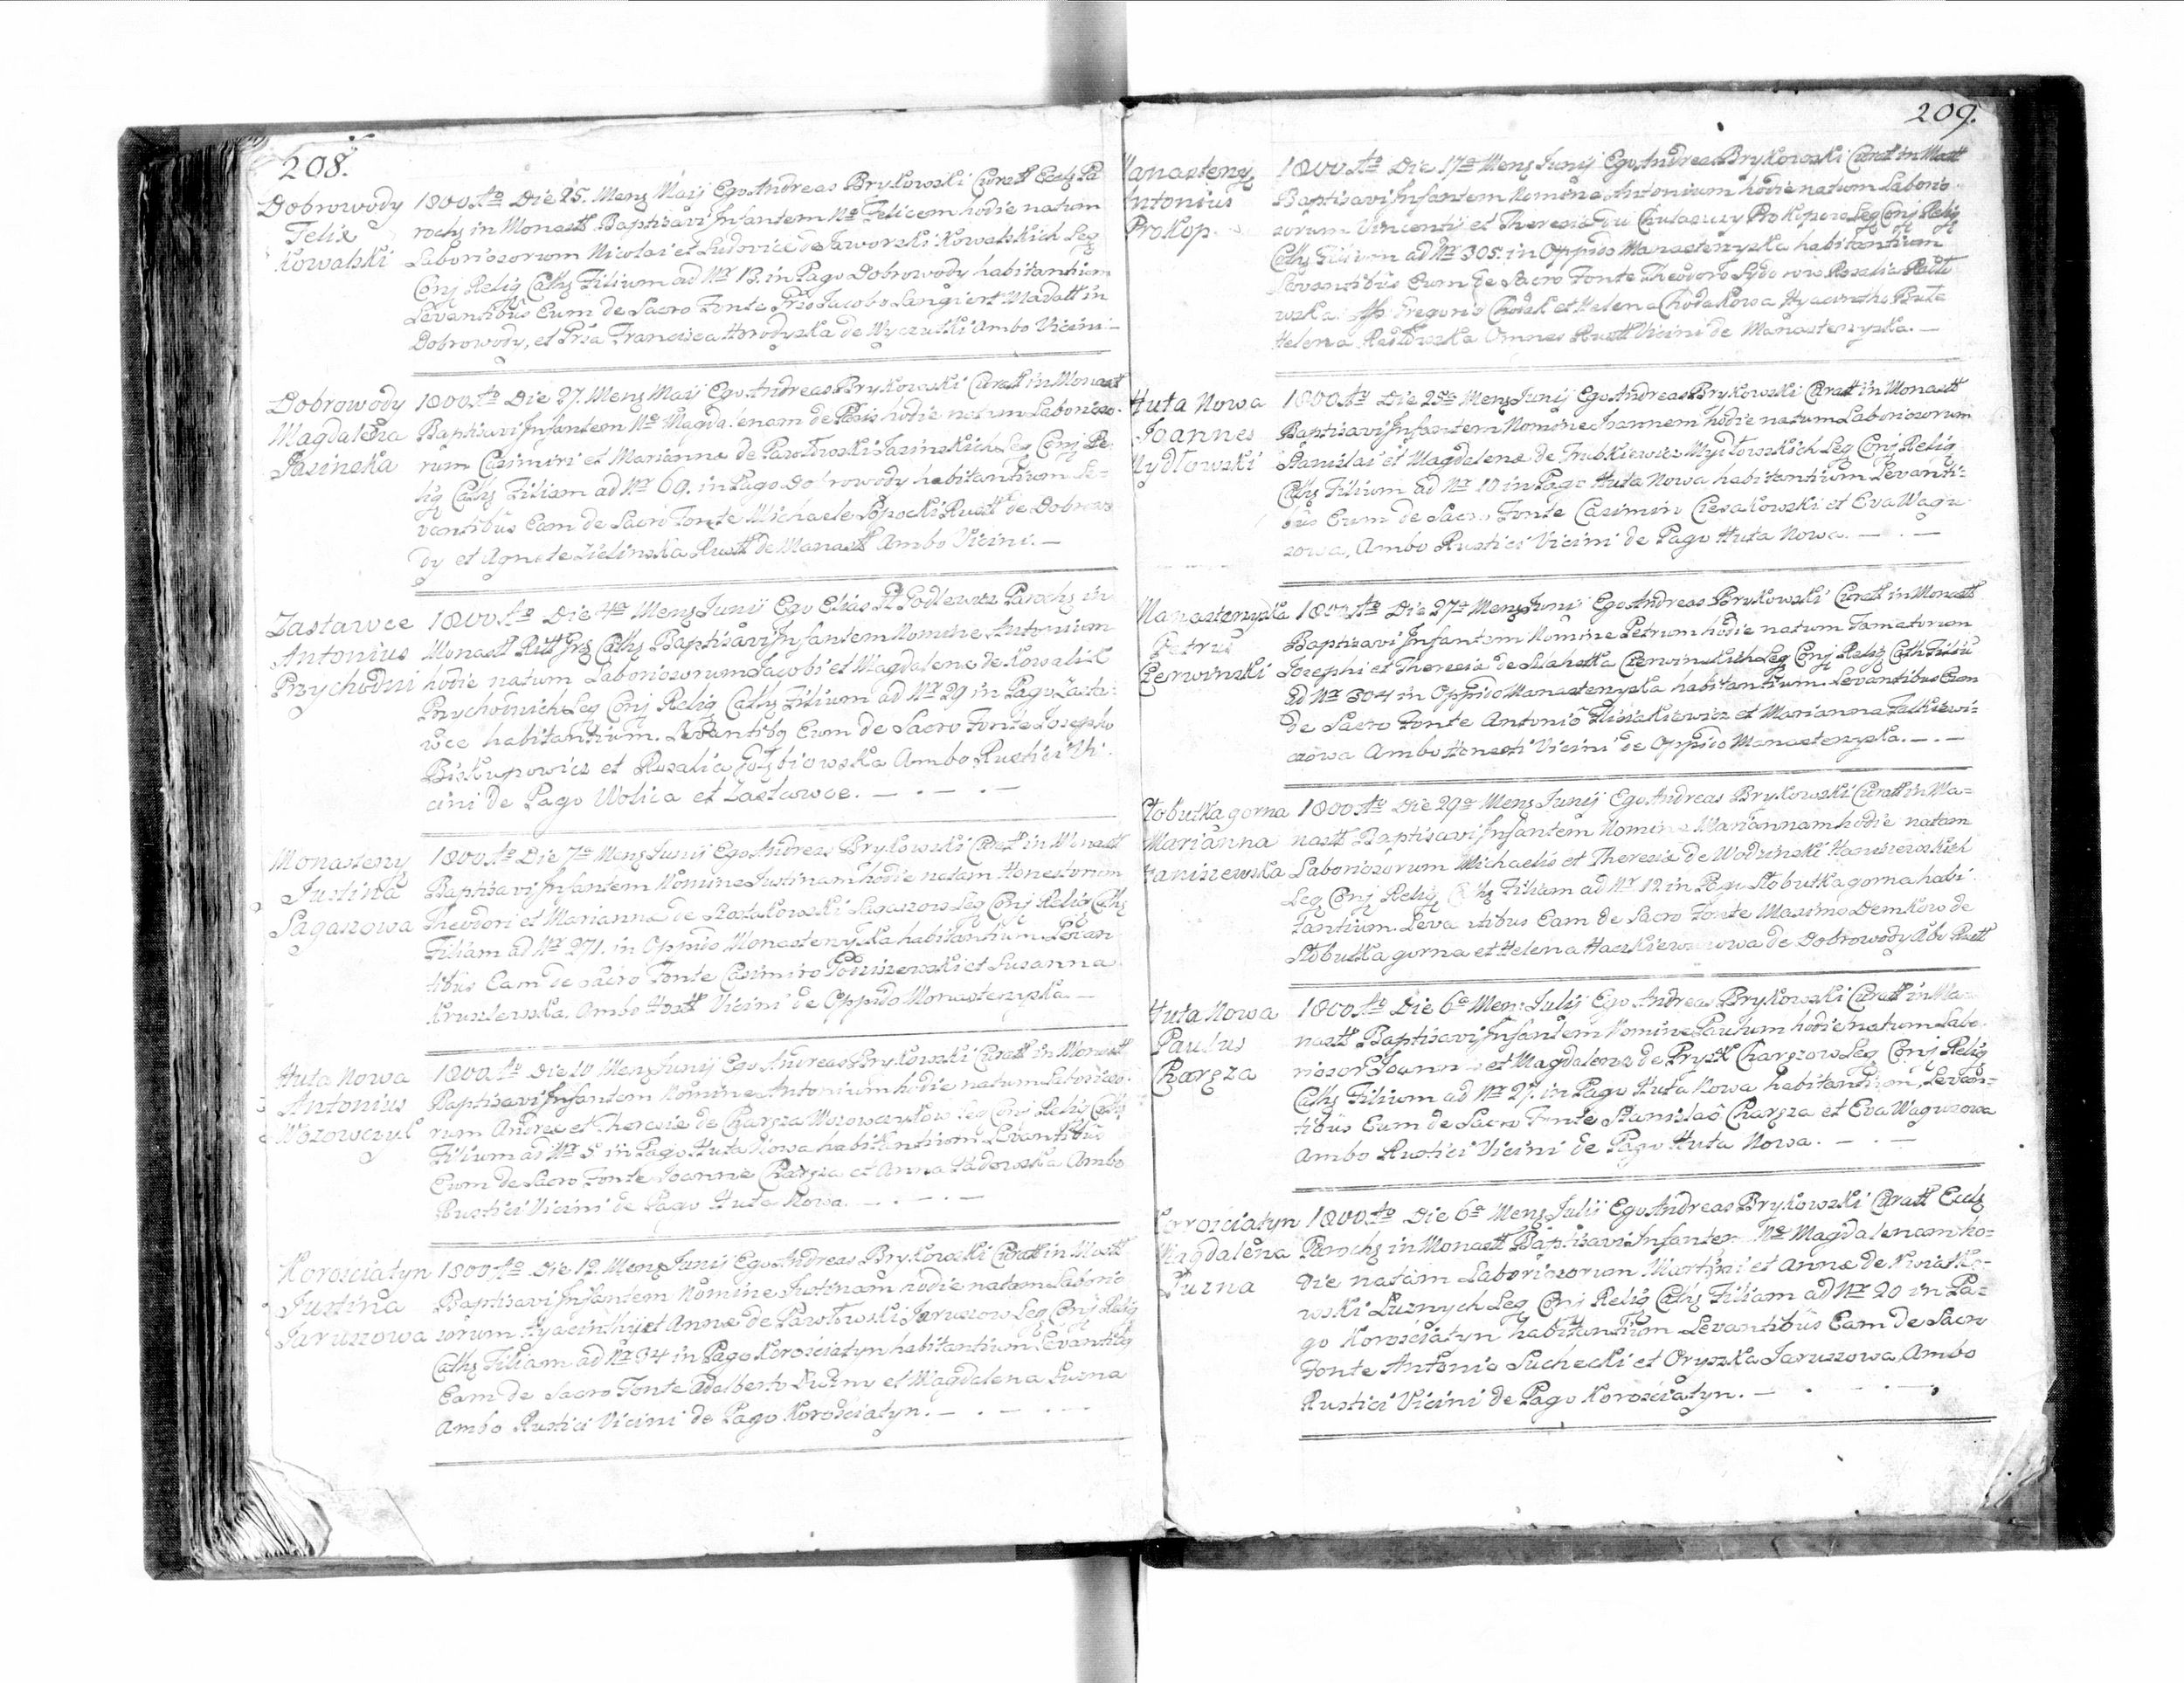 208.
Dobrowody
Felix
Kowalski
1800 Ao Die 25. Mens Maij Ego Andreas Brykowski Curatt Eccls Pa
rochs in Monastt Baptisavi Infantem Ne Felicem hodie natum
Laboriosorum Nicolai et Ludovicæ de Jaworski Kowalskich Leg
Conj Relig Caths Filium ad Nr 13. in Pago Dobrowody habitantium
Levantibus Eum de Sacro Fonte Jacobo Langiert
Dobrowody, et Francisca Horodyska de Wyczułki Ambo Vicini
Dobrowody
Magdalena
Jasinska
1800 Ao Die 27. Mens Maij Ego Andreas Brykowski Curatt in Monastt
Baptisavi Infantem Ne Magdalenam de hodie natum Laborioso
rum Casimiri et Mariannæ de Jasinskich Leg Conj Re
lig Caths Filiam ad Nr 69. in Pago Dobrowody habitantium Le=
vantibus Eam de Sacro Fonte Michaele Rustt de Dobrowo
dy et Agnete Zielinska Rustt de Manastt Ambo Vicini. —
Zastawce
Antonius
Przychodni
1800 Ao Die 4ta Mens Junij Ego Elias Podlewicz Parochs in
Monastt Ritt Caths Baptisavi Infantem Nomine Antonium
hodie natum Laboriosorum Jacobi et Magdalenæ de Kowalik
Przychodnich Leg Conj Relig Caths Filium ad Nr 29 in Pago Zasta:
wce habitantium. Levantibq Eum de Sacro Fonte Josepho
Biskupowicz et Rosalia Ambo Rustici Vi
cini de Pago Wolica et Zastawce. — . — . —
Monastery
Justina
Sagaszowa
1800 Ao Die 7a Mens Junij Ego Andreas Brykowski Curatt in Monastt
Baptisavi Infantem Nomine Justinam hodie natam Honestorum
Theodori et Mariannæ de Sagaszow Leg Conj Relig Caths
Filiam ad Nr 271. in Oppido Monasterzyska habitantium. Levan
tibus Eam de Sacro Fonte Casimiro et Susanna
Kruszlewska. Ambo Hostt Vicini de Oppido Monasterzyska. —
Huta Nowa
Antonius
Wozowczyk
1800 Ao Die 10 Mens Junij Ego Andreas Brykowski Curatt in Monastt
Baptisavi Infantem Nomine Antonium hodie natum Laborioso
rum Andreæ et Theresiæ de Charęza Wozowczykow Leg Conj Relig Caths
Filium ad Nr 5 in Pago Huta Nowa habitantium Levantibus
Eum de Sacro Fonte Joanne Charęza et Anna Sadowska Ambo
Rustici Vicini de Pago Huta Nowa. — . — . —
Korosciatyn
Justina
Jaruszowa
1800 Ao Die 12. Mens Junij Ego Andreas Brykowski Curatt in Mostt
Baptisavi Infantem Nomine Justinam hodie natam Laborio
sorum Hyacinthij et Annæ de Pawłowski Jaruszow Leg Conj Relig
Caths Filiam ad Nr 34 in Pago Korosciatyn habitantium Levantibq
Eam de Sacro Fonte Adalberto Luzny et Magdalena Luzna
Ambo Rustici Vicini de Pago Korosciatyn. — . — . —
209.
Manasterzy
Antonius
Prokop.
1800 Ao Die 17a Mens Junij Ego Andreas Brykowski Curatt in Mostt
Baptisavi Infantem Nomine Antonium hodie natum Laborio
sorum Vincentij et Theresiæ Leg Conj Relig
Caths Filium ad Nr 305. in Oppido Manasterzyska habitantium
Levantibus Eum de Sacro Fonte Theodoro Rosalia
Gregorio et Helena Hyacintho
Helena Omnes Rustt Vicini de Manasterzyska. —
Huta Nowa
Joannes
Mydłowski
1800 Ao Die 25ta Mens Junij Ego Andreas Brykowski Curatt in Monastt
Baptisavi Infantem Nomine Joannem hodie natum Laboriosorum
Stanislai et Magdalenæ de Trubkiewicz Mydłowskich Leg Conj Relig
Caths Filium ad Nr 10 in Pago Huta Nowa habitantium Levanti=
bus Eum de Sacro Fonte Casimiro et Eva Wagu
zowa, Ambo Rustici Vicini de Pago Huta Nowa. — . —
Manasterzyska
Petrus
Czerwinski
1800 Ao Die 27a Mens Junij Ego Andreas Brykowski Curatt in Monastt
Baptisavi Infantem Nomine Petrum hodie natum Famatorum
Josephi et Theresiæ de Czerwinskich Leg Conj Relig Cath Filiu
ad Nr 304 in Oppido Manasterzyska habitantium. Levantibus Eum
de Sacro Fonte Antonio et Marianna Falkiewi=
czowa Ambo Honesti Vicini de Oppido Manasterzyska. — . —
Słobutka gorna
Marianna
Haniszewska
1800 Ao Die 29a Mens Junij Ego Andreas Brykowski Curatt in Ma=
nastt Baptisavi Infantem Nomine Mariannam hodie natam
Laboriosorum Michaelis et Theresiæ de Wodzinski Haniszewskich
Leg Conj Relig Caths Filiam ad Nr 12 in Pago Słobutka gorna habi
tantium. Levantibus Eam de Sacro Fonte Maximo Demkow de
Słobutka gorna et Helena de Dobrowody Abo Rustt
Huta Nowa
Paulus
Charęza
1800 Ao Die 6a Men: Julij Ego Andreas Brykowski Curatt in Ma
nastt Baptisavi Infantem Nomine Paulum hodie natum Labo
riosor Joannis et Magdalenæ de Pryszk Charęzow Leg Conj Relig
Caths Filium ad Nr 27. in Pago Huta Nowa habitantium, Levan=
tibus Eum de Sacro Fonte Stanislao Charęza et Eva Waguzowa
Ambo Rustici Vicini de Pago Huta Nowa. — . —
Korosciatyn
Magdalena
Luzna
1800 Ao Die 6a Mens Julij Ego Andreas Brykowski Curatt Eccls
Parochs in Monastt Baptisavi Infantem Ne Magdalenam ho=
die natam Laboriosorum Martini et Annæ de Kwiatko=
wski Luznych Leg Conj Relig Caths Filiam ad Nr 20 in Pa=
go Korosciatyn habitantium Levantibus Eam de Sacro
Fonte Antonio Suchecki et Oryszka Jaruszowa, Ambo
Rustici Vicini de Pago Korosciatyn. — . — . —